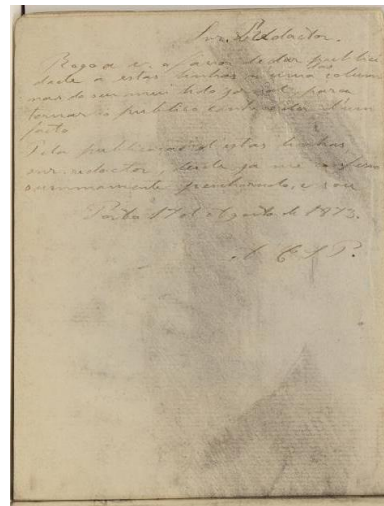 Snr. Redactor.
Rogo a v. o favor de dar publici
dade a estas linhas n'uma das colum
nas do seu mui lido jornal, para
tornar o publico d'um
facto
Pela publicação d'estas linhas,
snr. redactor, desde já me
summamente penhorado, e sou
Porto 17 d'Agosto de 1873.